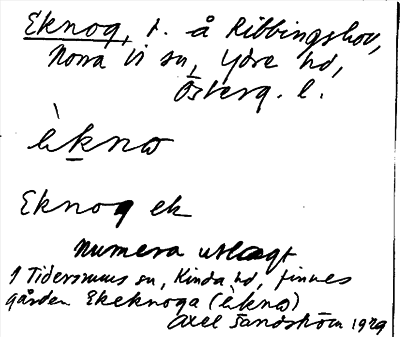 Eknog, t. å Ribbingshov,
Norra Vi sn, Ydre hd,
Österg. l.
èknω
Eknog ek
Numera utlagt
I Tidersrums sn, Kinda hd, finnes
gården Ekeknoga (èknω)
Axel Sandström 1929